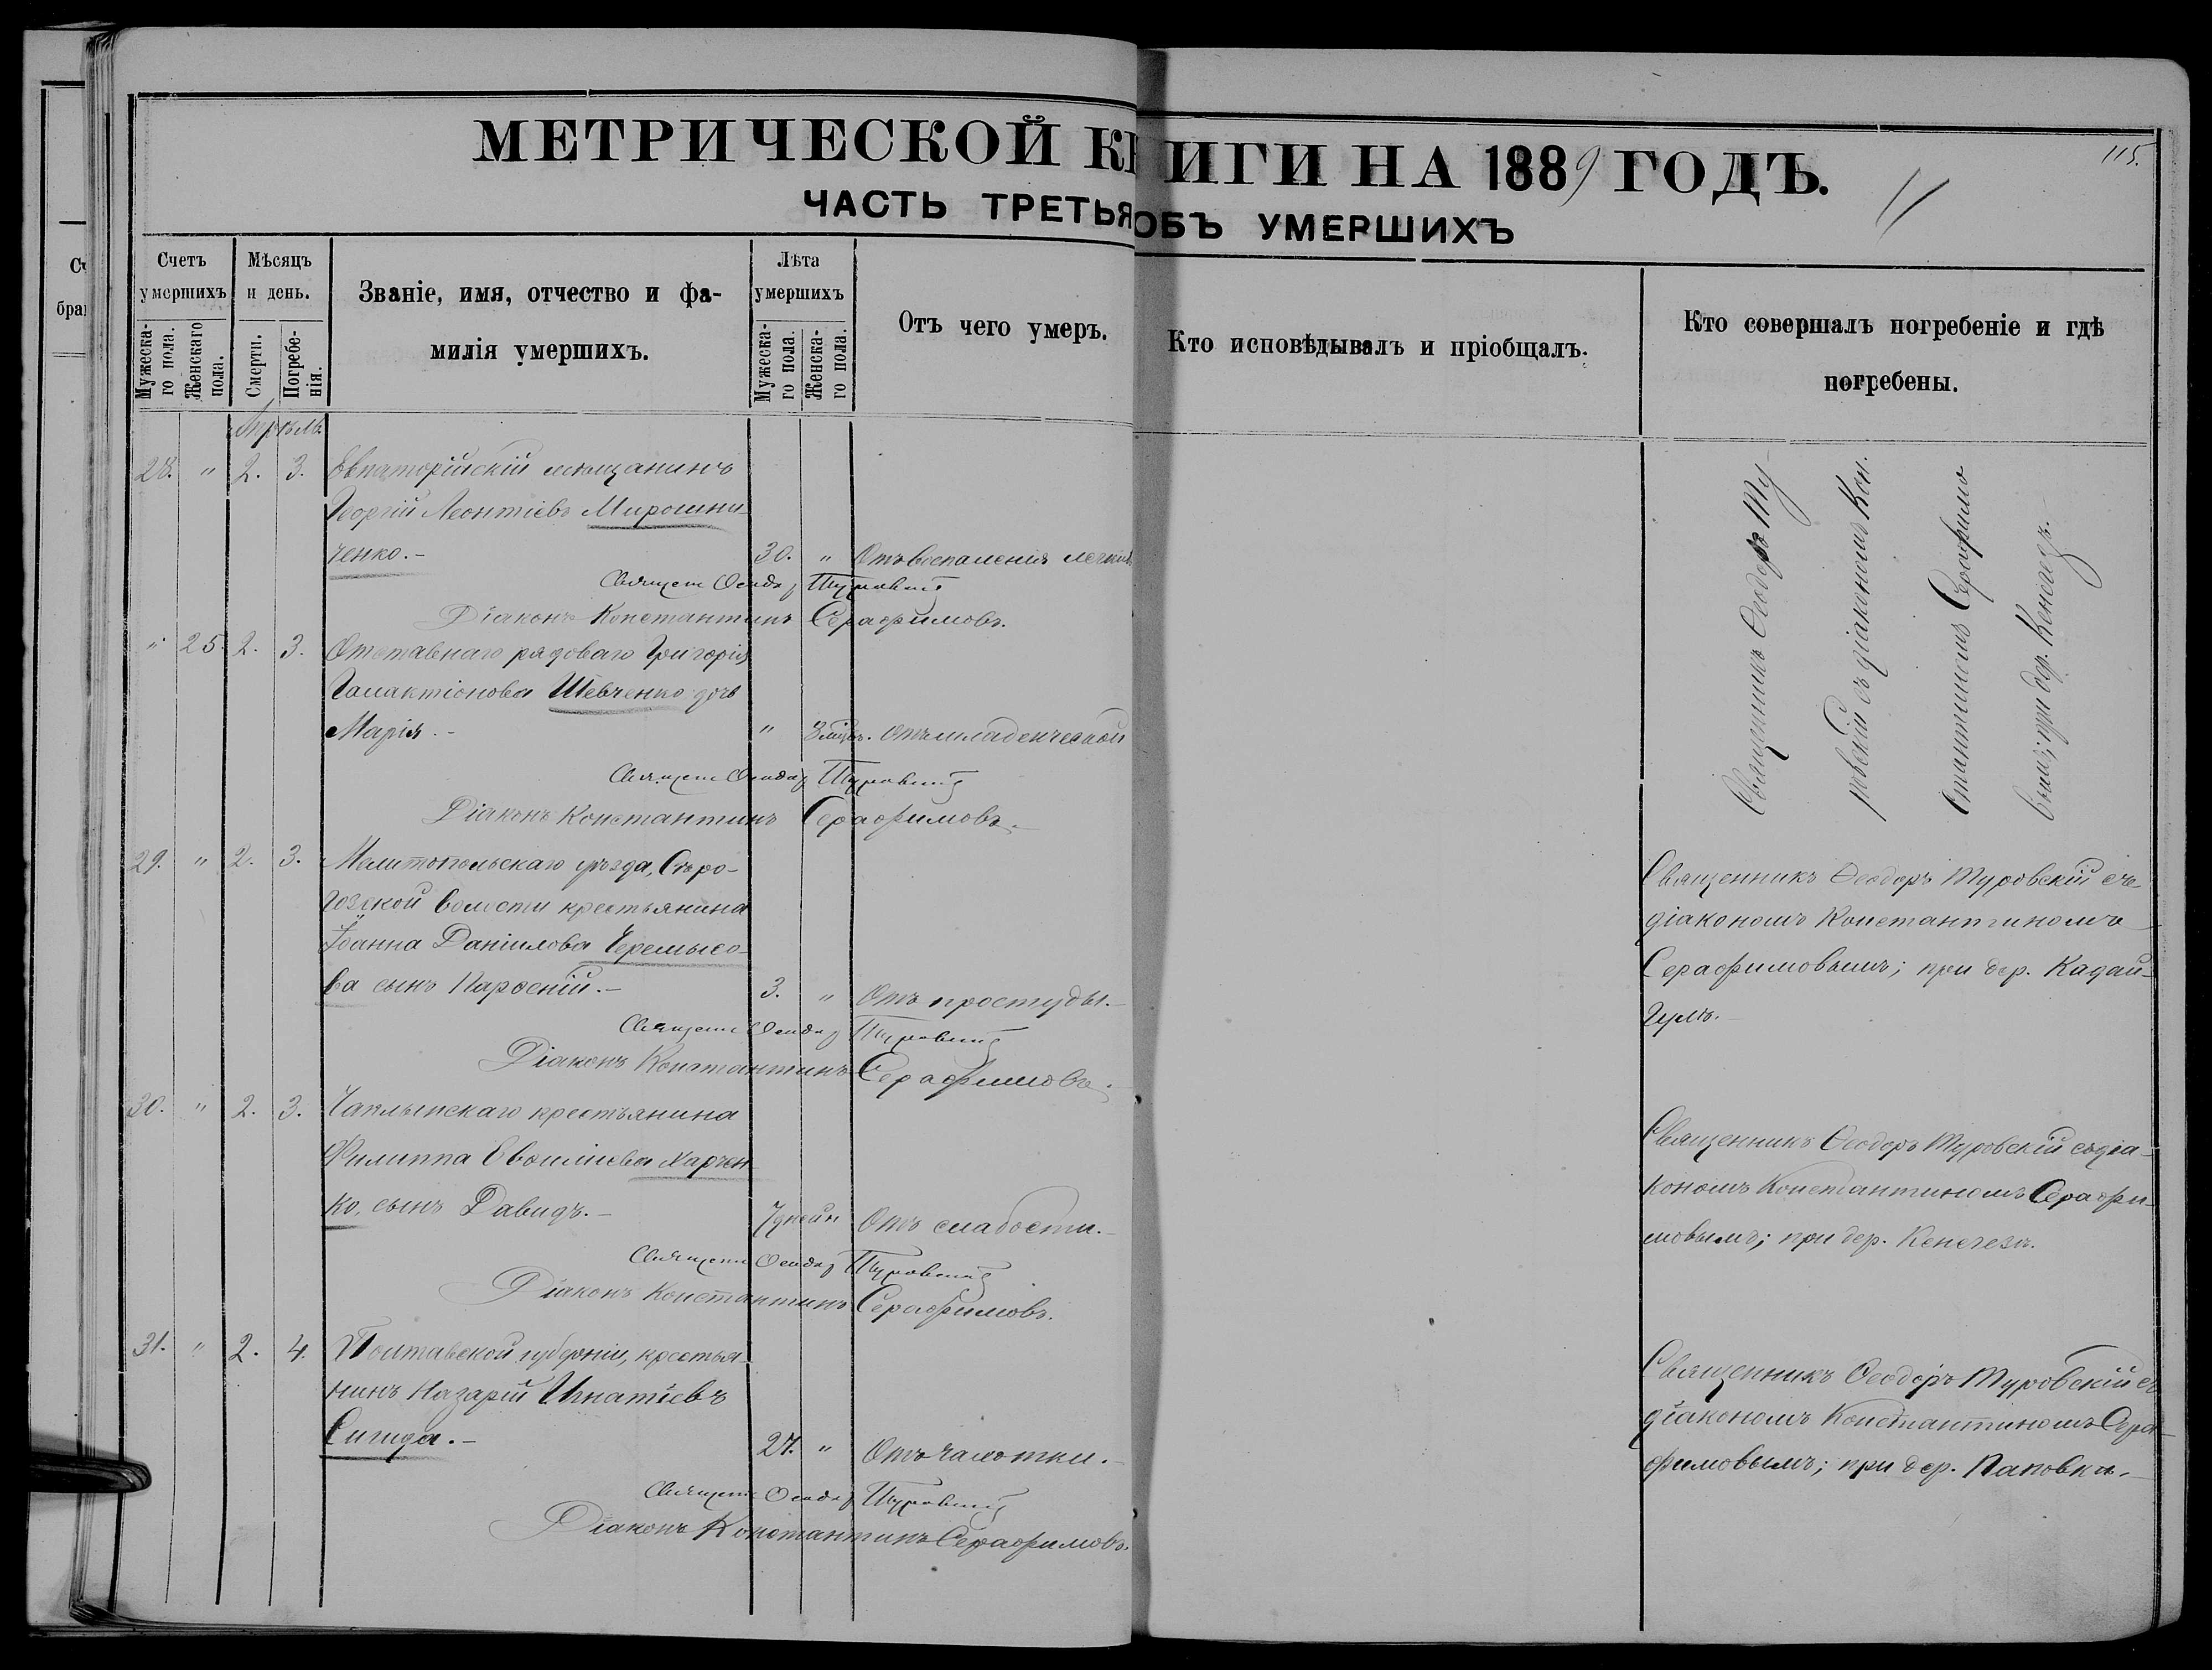 МЕТРИЧЕСКОЙ КНИГИ НА 1889 ГОДЪ.
115.
ЧАСТЬ ТРЕТЬЯ ОБЪ УМЕРШИХЪ
Счетъ умершихъ
Мужескаго пола.
Женскаго пола.
Мѣсяцъ и день.
Смерти.
Погребенія.
Званіе, имя, отчество и фа-
милія умершихъ.
Лѣта умершихъ
Мужескаго пола.
Женскаго пола.
Отъ чего умеръ.
Кто исповѣдывалъ и пріобщалъ.
Кто совершалъ погребеніе и гдѣ
погребены.
Апрѣль
28. " 2. 3. Евпаторійскій мѣщанинъ
Георгій Леонтіевъ Мирошни-
ченко.- 30. " Отъ воспаленія легкихъ
Священ Ѳеодор Туровский
Діаконъ Константинъ Серафимовъ.
Священникъ Ѳеодоръ Ту-
ровскій съ діакономъ Кон-
стантиномъ Серафимо
вымъ; при дер. Кенегезъ.
" 25. 2. 3. Отставнаго рядоваго Григорія
Галактіонова Шевченко дочь
Марія.- " 3 мѣс. Отъ младенческой
Священ Ѳеодор Туровский
Діаконъ Константинъ Серафимовъ.
29. " 2. 3. Мелитопольскаго уѣзда, Сѣро-
гозской волости крестьянина
Іоанна Даніилова Черемысо-
ва сынъ Парѳеній.- 3. " Отъ простуды.-
Священ Ѳеодор Туровский
Діаконъ Константинъ Серафимовъ.
Священникъ Ѳеодоръ Туровскій съ
діакономъ Константиномъ
Серафимовымъ; при дер. Кадай-
30. " 2. 3. Чаплынскаго крестьянина
Филиппа Харчен-
ко, сынъ Давидъ.- 7 дней " Отъ слабости.-
Священ Ѳеодор Туровский
Діаконъ Константинъ Серафимовъ.
Священникъ Ѳеодоръ Туровскій съ діа-
кономъ Константиномъ Серафи-
мовымъ; при дер. Кенегезъ.
31. " 2. 4. Полтавской губерніи, крестья-
нинъ Назарій Игнатіевъ
Сигида.- 27. " Отъ чахотки.-
Священ Ѳеодор Туровский
Діаконъ Константинъ Серафимовъ.
Священникъ Ѳеодоръ Туровскій съ
діакономъ Константиномъ Сера-
фимовымъ; при дер. Пановка.-